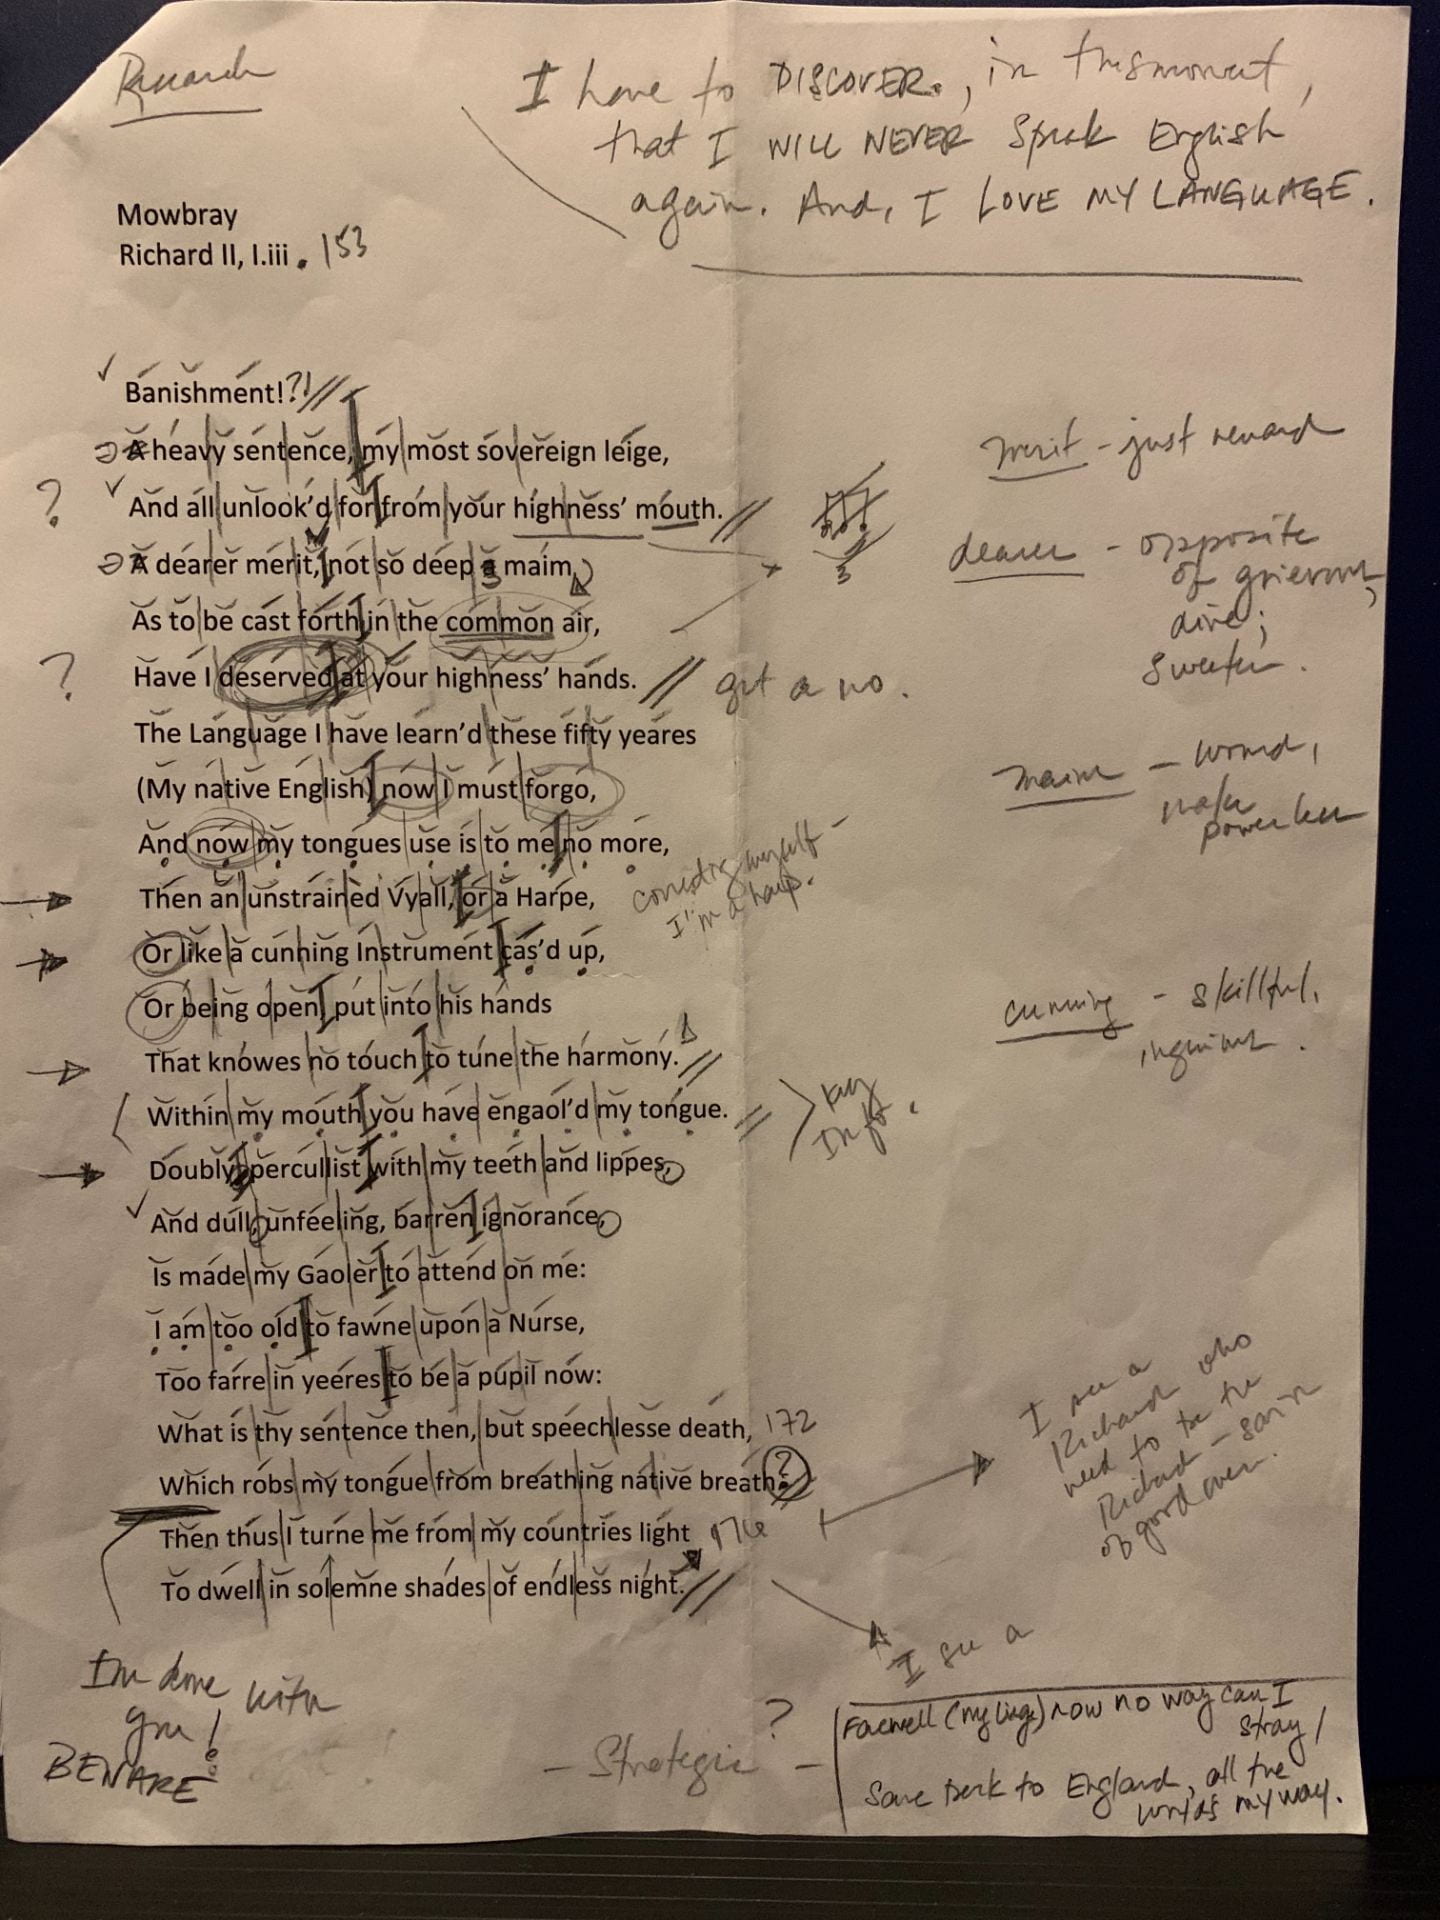 I have to DISCOVER, in this moment,
that I WILL NEVER Speak English
again. And, I LOVE MY LANGUAGE.
Mowbray
Richard II, I.iii. 153
Banishment!?!
A heavy sentence, my most sovereign leige,
And all unlook'd for from your highness' mouth.
A dearer merit, not so deep a maim,
As to be cast forth in the common air,
Have I deserved at your highness' hands.
get a no.
The Language I have learn'd these fifty yeares
(My native English) now I must forgo,
And now my tongues use is to me no more,
Then an unstrained Vyall, or a Harpe,
Or like a cunning Instrument cas'd up,
Or being open, put into his hands
That knowes no touch to tune the harmony.
Within my mouth you have engaol'd my tongue.
Doubly percullist with my teeth and lippes,
And dull, unfeeling, barren ignorance,
Is made my Gaoler to attend on me:
I am too old to fawne upon a Nurse,
Too farre in yeeres to be a pupil now:
What is thy sentence then, but speechlesse death, 172
Which robs my tongue from breathing native breath?
Then thus I turne me from my countries light
To dwell in solemne shades of endless night.
?
?
merit - just reward
3
dearer - opposite
of grievous,
dire;
sweeter.
maim - wound,
make
powerless
correcting myself -
I'm a harp.
cunning - skillful,
key
Info.
I see a
Richard who
need to be the
Richard -
of good over.
I see a
I'm done with
you!
BEWARE
- Strategic -
?
Farewell (my liege) now no way can I
stray/
Save back to England, all the
world's my way.